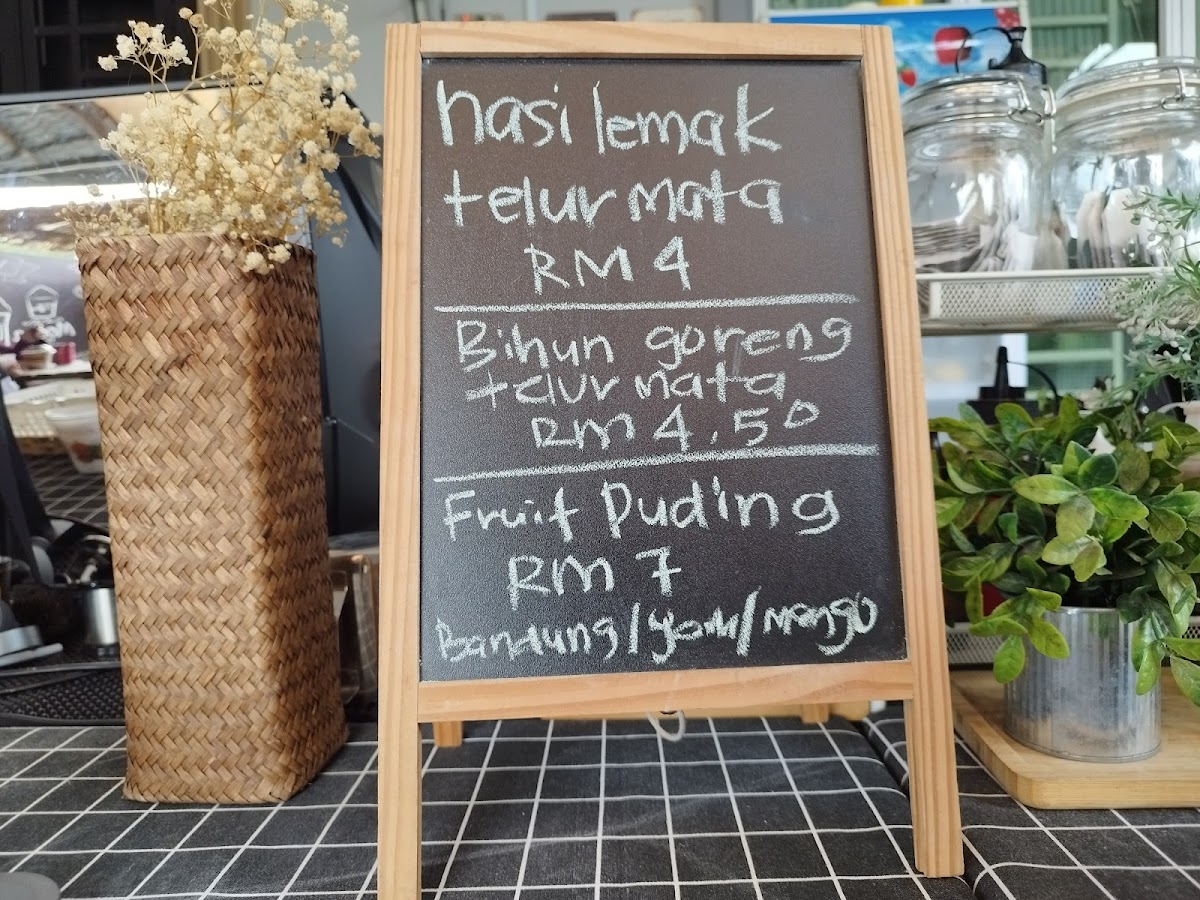 nasi lemak
telur mata
RM 4
Bihun goreng
telur mata
RM 4.50
Fruit Puding
RM 7
Bandung / / Mango